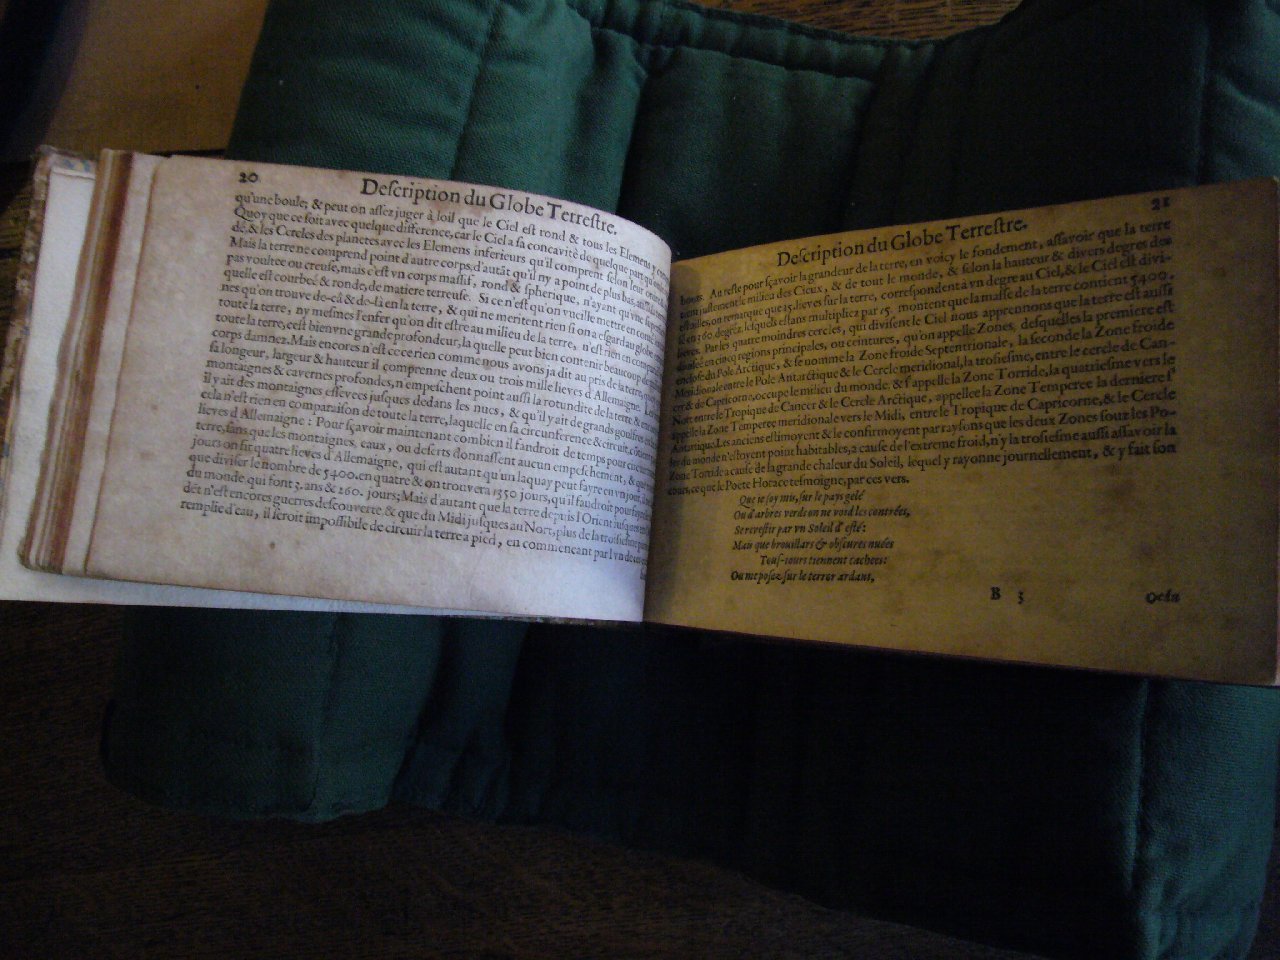 20
Deſcription du Globe Terreſtre.
qu'une boule; & peut on aſſez juger à loil que le Ciel eſt rond & tous les Elemens y
Quoy que ce ſoit avec quelque difference, car le Ciel a ſa concavité de quelque part qu'on
de, & les Cercles des planetes avec les Elemens inferieurs qu'il comprent ſelon leur
Mais la terre ne comprend point d'autre corps, d'autāt qu'il n'y a point de plus bas,
pas voultee ou creuſe, mais c'eſt vn corps maſſif, rond & ſpherique, n'ayant qu'vne
quelle eſt courbeé & ronde, de matiere terreuſe. Si ce n'eſt qu'on vueille mettre en
nes qu'on trouve de-cà & de-là en la terre, & qui ne meritent rien ſi on a eſgard au globe
toute la terre, ny meſmes l'enfer qu'on dit eſtre au milieu de la terre, n'eſt rien en
toute la terre, c'eſt bien vne grande profondeur, la quelle peut bien contenir beaucoup de
corps damnez. Mais encores n'eſt ce ce rien comme nous avons ja dit au pris de la terre,
ſa longeur, largeur & hauteur il comprenne deux ou trois mille lieves d'Allemaigne. Les
montaignes & cavernes profondes, n'empeſchent point auſſi la rotundite de la terre &
il y ait des montaignes eſlevees juſques dedans les nues, & qu'il y ait de grands goulfres
cela n'eſt rien en comparaiſon de toute la terre, laquelle en ſa circunference & circuit,
lieves d'Allemaigne: Pour ſçavoir maintenant combien il faudroit de temps pour
terre, ſans que les montaignes, eaux, ou deſerts donnaſſent aucun empeſchement, &
jours on fit quatre lieves d'Allemaigne, qui eſt autant qu'un laquay peut fayre en vn jour,
que diviſer le nombre de 5400. en quatre & on trouvera 1350 jours, qu'il faudroit pour
du monde qui font 3. ans & 260. jours; Mais d'autant que la terre depuis l'Orient juſques
det n'eſt encores guerres deſcouverte & que du Midi juſques au Nort, plus de la troiſieſme
remplie d'eau, il ſeroit impoſſibile de circuir la terre a pied, en commençant par l'vn de
21
Deſcription du Globe Terreſtre.
bouts. Au reſte pour ſçavoir la grandeur de la terre, en voicy le fondement, aſſavoir que la terre
juſtement le milieu des Cieux, & de tout le monde, & ſelon la hauteur & divers degres des
eſtoilles, on remarque que 15. lieves ſur la terre, correſpondent à vn degre au Ciel, & le Ciel eſt divi-
ſé en 360. degréz, leſquels eſtans multipliez par 15 montent que la maſſe de la terre contient 5400.
lieves. Par les quatre moindres cercles, qui diviſent le Ciel nous apprennons que la terre eſt auſſi
diviſée en cinq regions principales, ou ceintures, qu'on appelle Zones, deſquelles la premiere eſt
encloſe du Pole Arctique, & ſe nomme la Zone froide Septentrionale, la ſeconde la Zone froide
Meridionale entre le Pole Antarctique & le Cercle meridional, la troiſieſme, entre le cercle de Can-
cer & de Capricorne, occupe le milieu du monde, & ſ'appelle la Zone Torride, la quatrieſme vers le
Nort entre le Tropique de Cancer & le Cercle Arctique, appellee la Zone Temperee la derniere ſ'
appelle la Zone Temperee meridionale vers le Midi, entre le Tropique de Capricorne, & le Cercle
Antartique. Les anciens eſtimoyent & le confirmoyent par rayſons que les deux Zones ſouz les Po-
les du monde n'eſtoyent point habitables, a cauſe de l'extreme froid, n'y la troſieſme auſſi aſſavoir la
Zone Torride a cauſe de la grande chaleur du Soleil, lequel y rayonne journellement, & y fait ſon
cours, ce que le Poete Horace teſmoigne, par ces vers.
Que ie ſoy mis, ſur le pays gelé
Ou d'arbres verds on ne void les contrées,
Se reveſtir par vn Soleil d'eſté:
Mais que brouillars & obſcures nuées
Touſ-iours tiennent cachees:
Ou me poſez ſur le terror ardans,
B 3